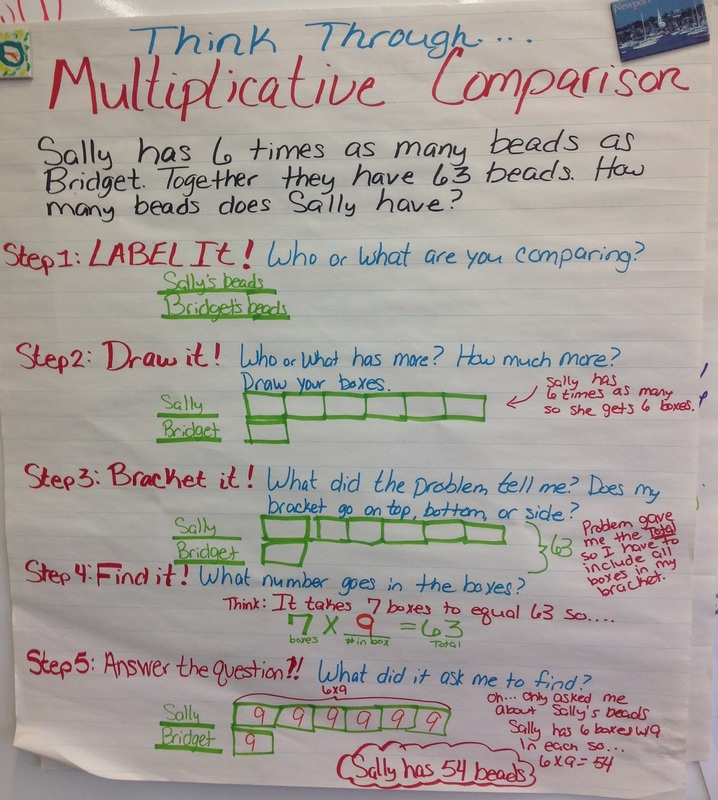 Newport
Think Through....
Multiplicative Comparison
Sally has 6 times as many beads as
Bridget. Together they have 63 beads. How
many beads does Sally have?
Step 1: LABEL It! Who or what are you comparing?
Sally's beads
Bridget's beads
Step 2: Draw it! Who or What has more? How much more?
Draw your boxes.
Sally
Bridget
Sally has
6 times as many
so she gets 6 boxes.
Step 3: Bracket it! What did the problem tell me? Does my
bracket go on top, bottom, or side?
Sally
Bridget
63
Problem gave
me the Total
so I have to
include all
boxes in my
bracket.
Step 4: Find it! What number goes in the boxes?
Think: It takes 7 boxes to equal 63 so....
7 X 9 = 63
boxes # in box Total
Step 5: Answer the question?! What did it ask me to find?
6x9
Sally 9 9 9 9 9 9
Bridget 9
oh... only asked me
about Sally's beads
Sally has 6 boxes w/9
in each so...
6 x 9 = 54
Sally has 54 beads